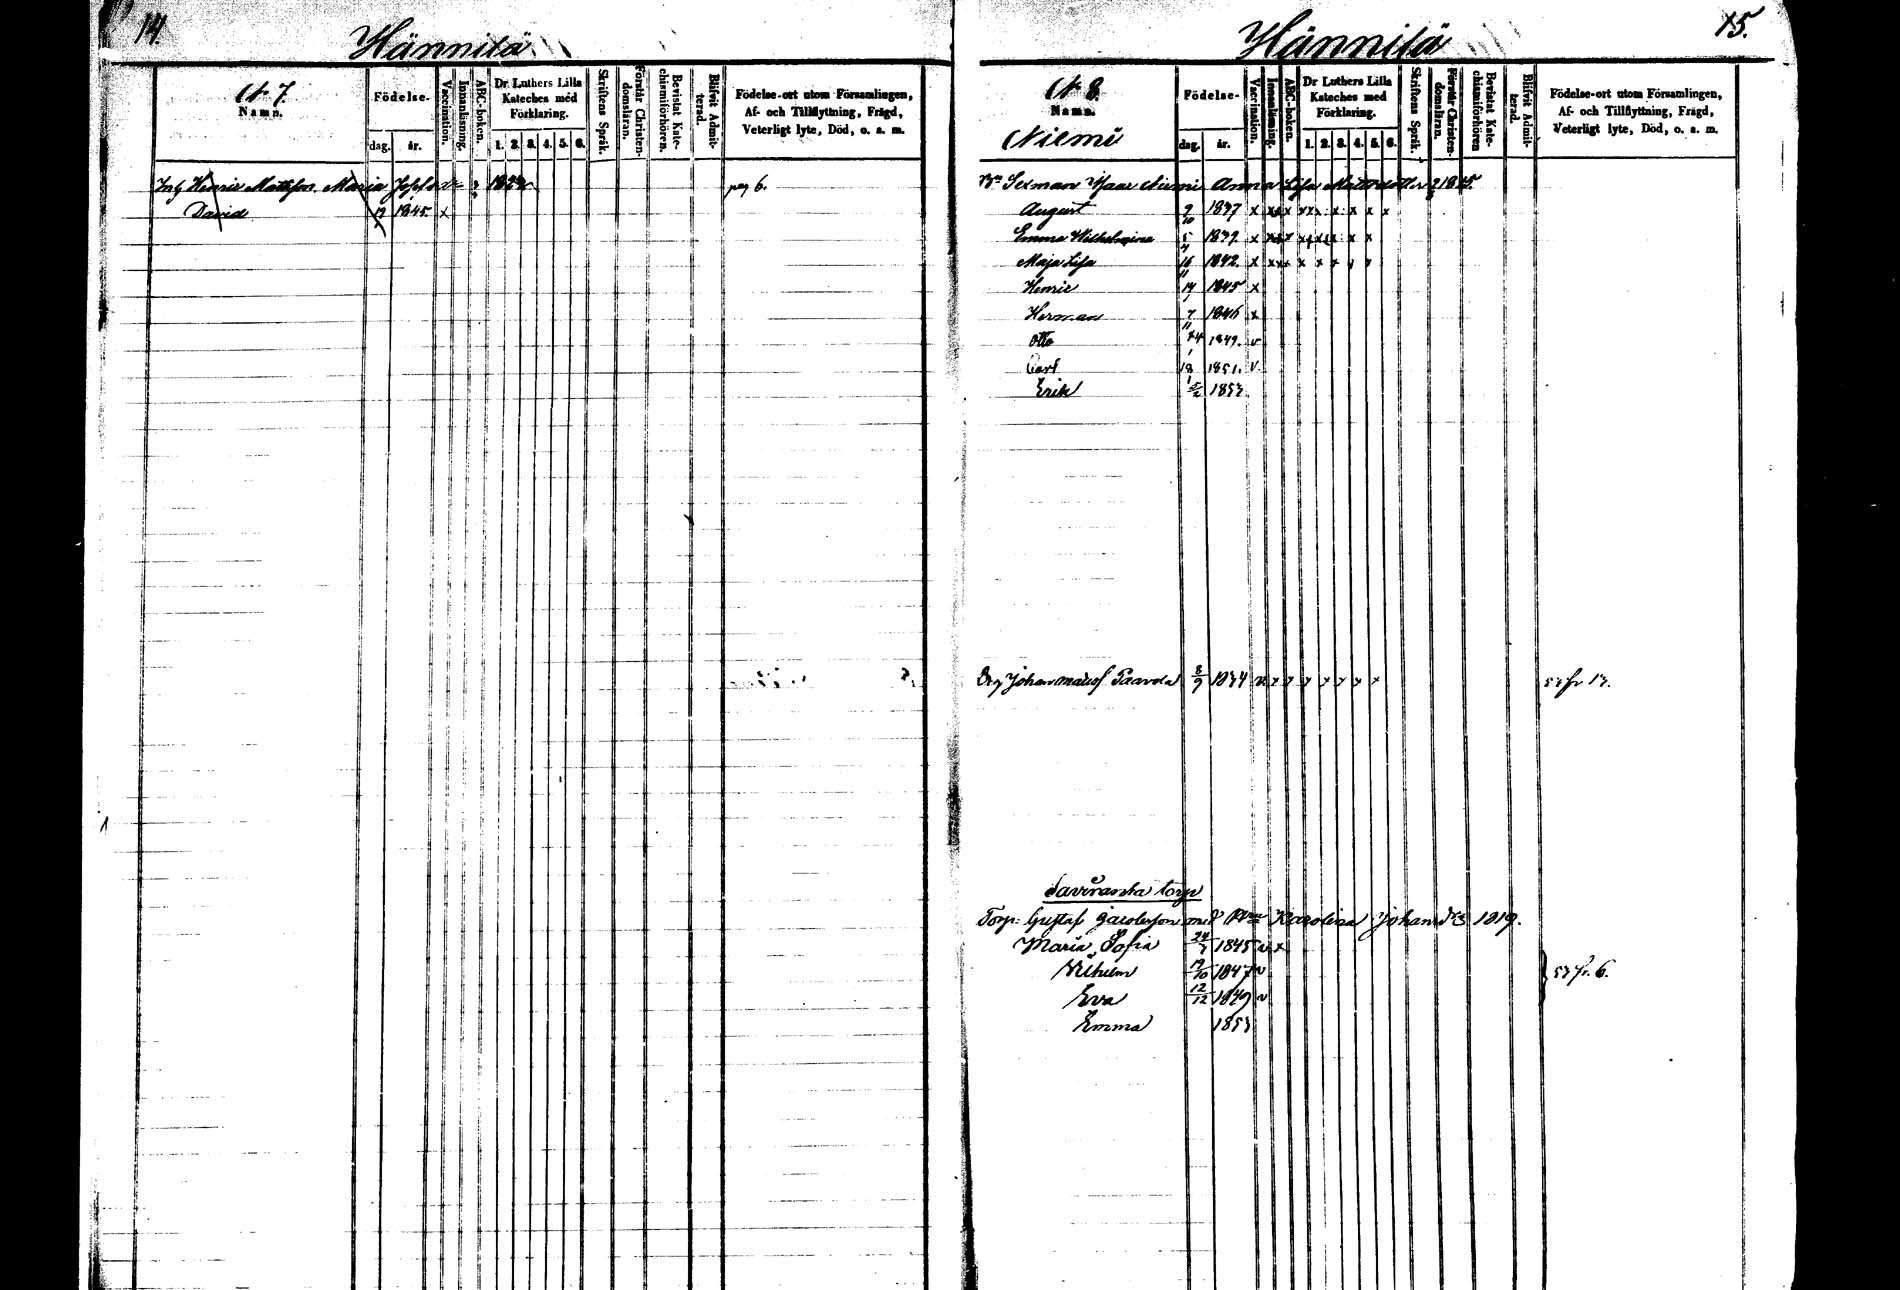 14.
Hännilä
N 7.
Namn.
Födelse-
dag. år.
Vaccination.
Innanläsning.
ABC-boken.
Dr Luthers Lilla
Kateches med
Förklaring.
1. 2. 3. 4. 5. 6.
Skriftens Språk.
Förstår Christen-
domsläran.
Bevistat Kate-
chismiförhören.
Blifvit Admit-
terad.
Födelse-ort utom Församlingen,
Af- och Tillflyttning, Frägd,
Veterligt lyte, Död, o. s. m.
Henric Mattsson Maria pag 6.
David 1845 x
15.
Hännilä
N 8.
Namn.
Niemi
Födelse-
dag. år.
Vaccination.
Innanläsning.
ABC-boken.
Dr Luthers Lilla
Kateches med
Förklaring.
1. 2. 3. 4. 5. 6.
Skriftens Språk.
Förstår Christen-
domsläran.
Bevistat Kate-
chismiförhören
Blifvit Admit-
terad.
Födelse-ort utom Församlingen,
Af- och Tillflyttning, Frägd,
Veterligt lyte, Död, o. s. m.
Niemi Anna Lisa Mattsdotter 1815.
August 9/10 1837 x x x x x x x x x x
Emma Wilhelmina 5/4 1839. x x x x x x x x x
Maja Lisa 16/11 1842. x x x x x x x x x
Henric 1845 x
Herman 7/11 1846 x
Otto 24/1 1849. v
Carl 18/1 1851. v
Erik 5/2 1853
Johan Paavola 8/9 1834 v x x x x x x x 53 fr 13.
torp
Torp: Gustaf Jacobsson med Karolina 1819.
Maria Sofia 24/7 1845 v x
Vilhelm 19/10 1847 v 53 fr. 6.
Eva 12/12 1849 v
Emma 1853